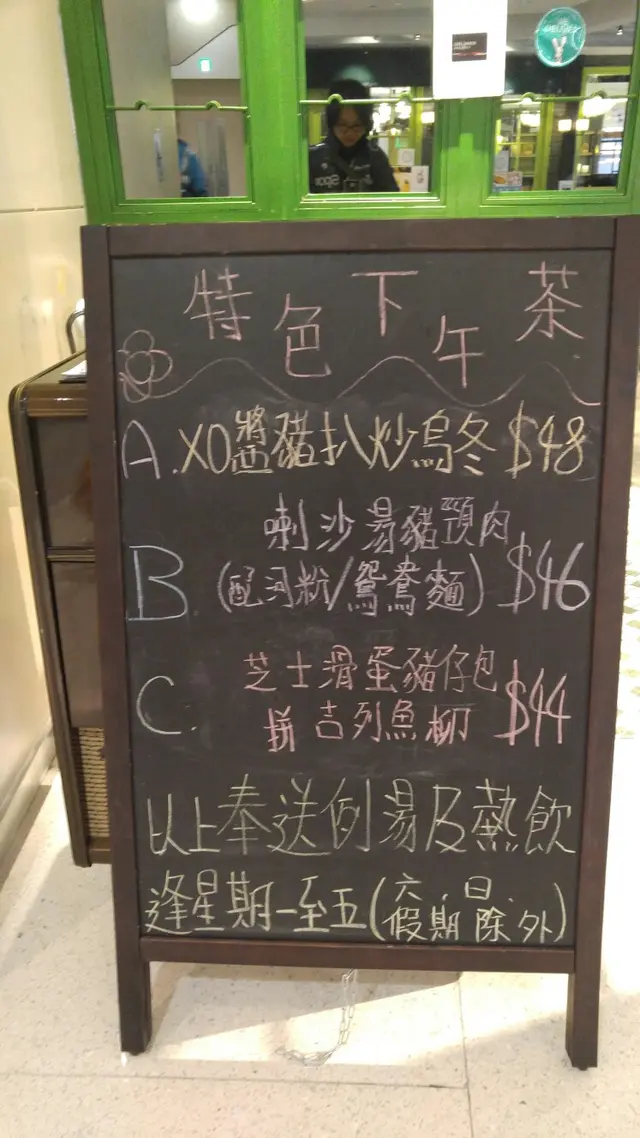 特色下午茶
A. XO醬豬扒炒烏冬 $48
B. 喇沙湯豬頸肉
(配河粉/鴛鴦麵) $46
C. 芝士滑蛋豬仔包
拼吉列魚柳 $44
以上奉送例湯及熱飲
逢星期一至五(六.日.
假期除外)